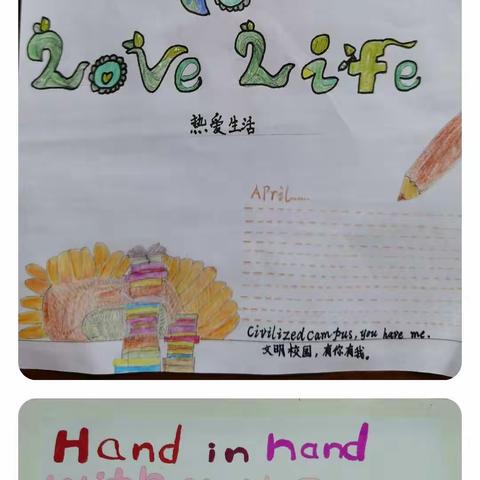 Love Life
热爱生活
April......
Civilized campus, you have me.
文明校园，有你有我。
Hand in hand